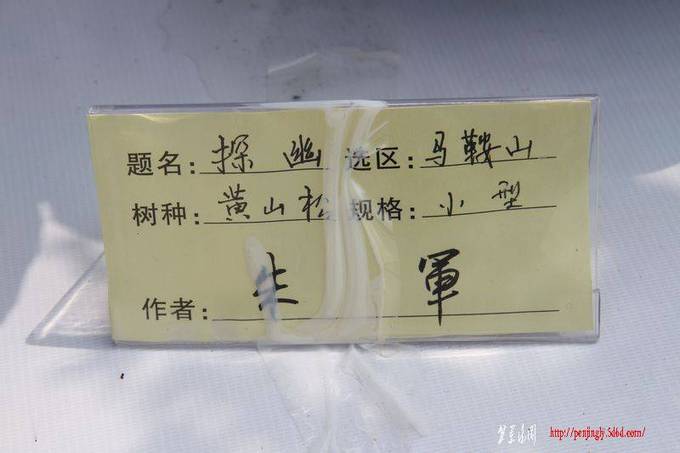 题名：探幽 选区：马鞍山
树种：黄山松 规格：小型
作者：朱軍
http://penjingly.5d6d.com/